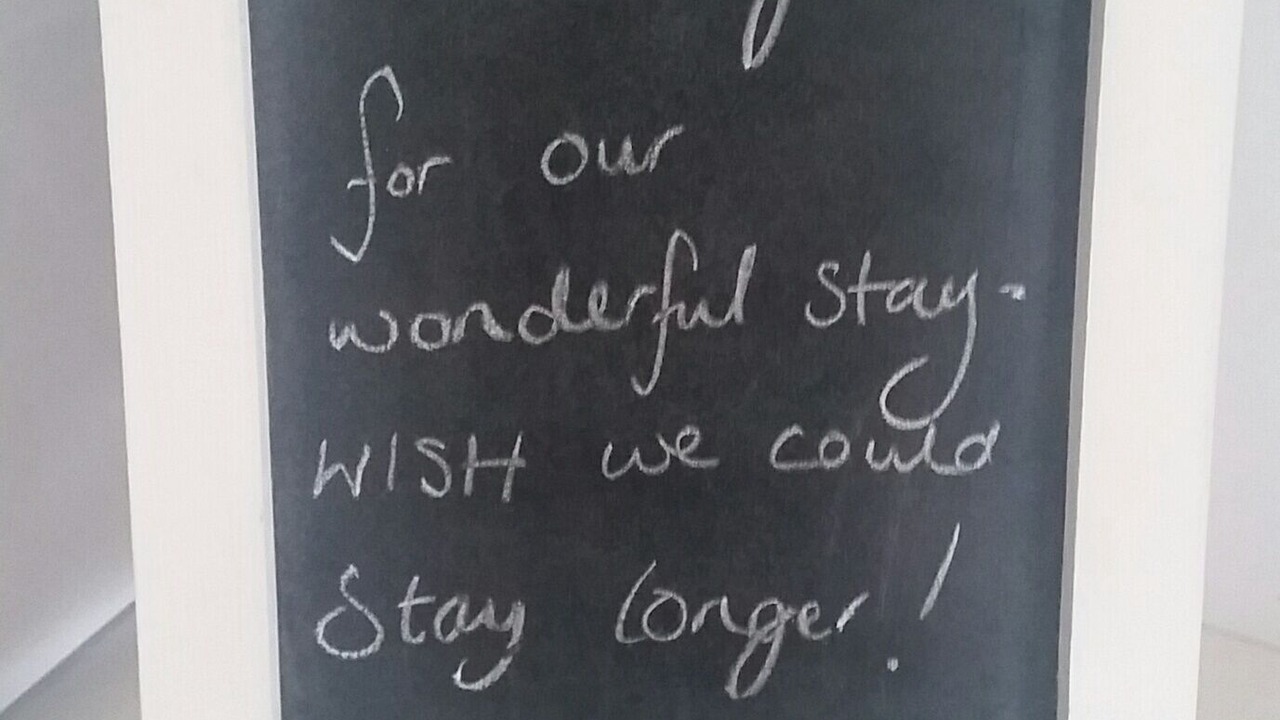 for our
wonderful stay-
WISH we could
Stay longer!